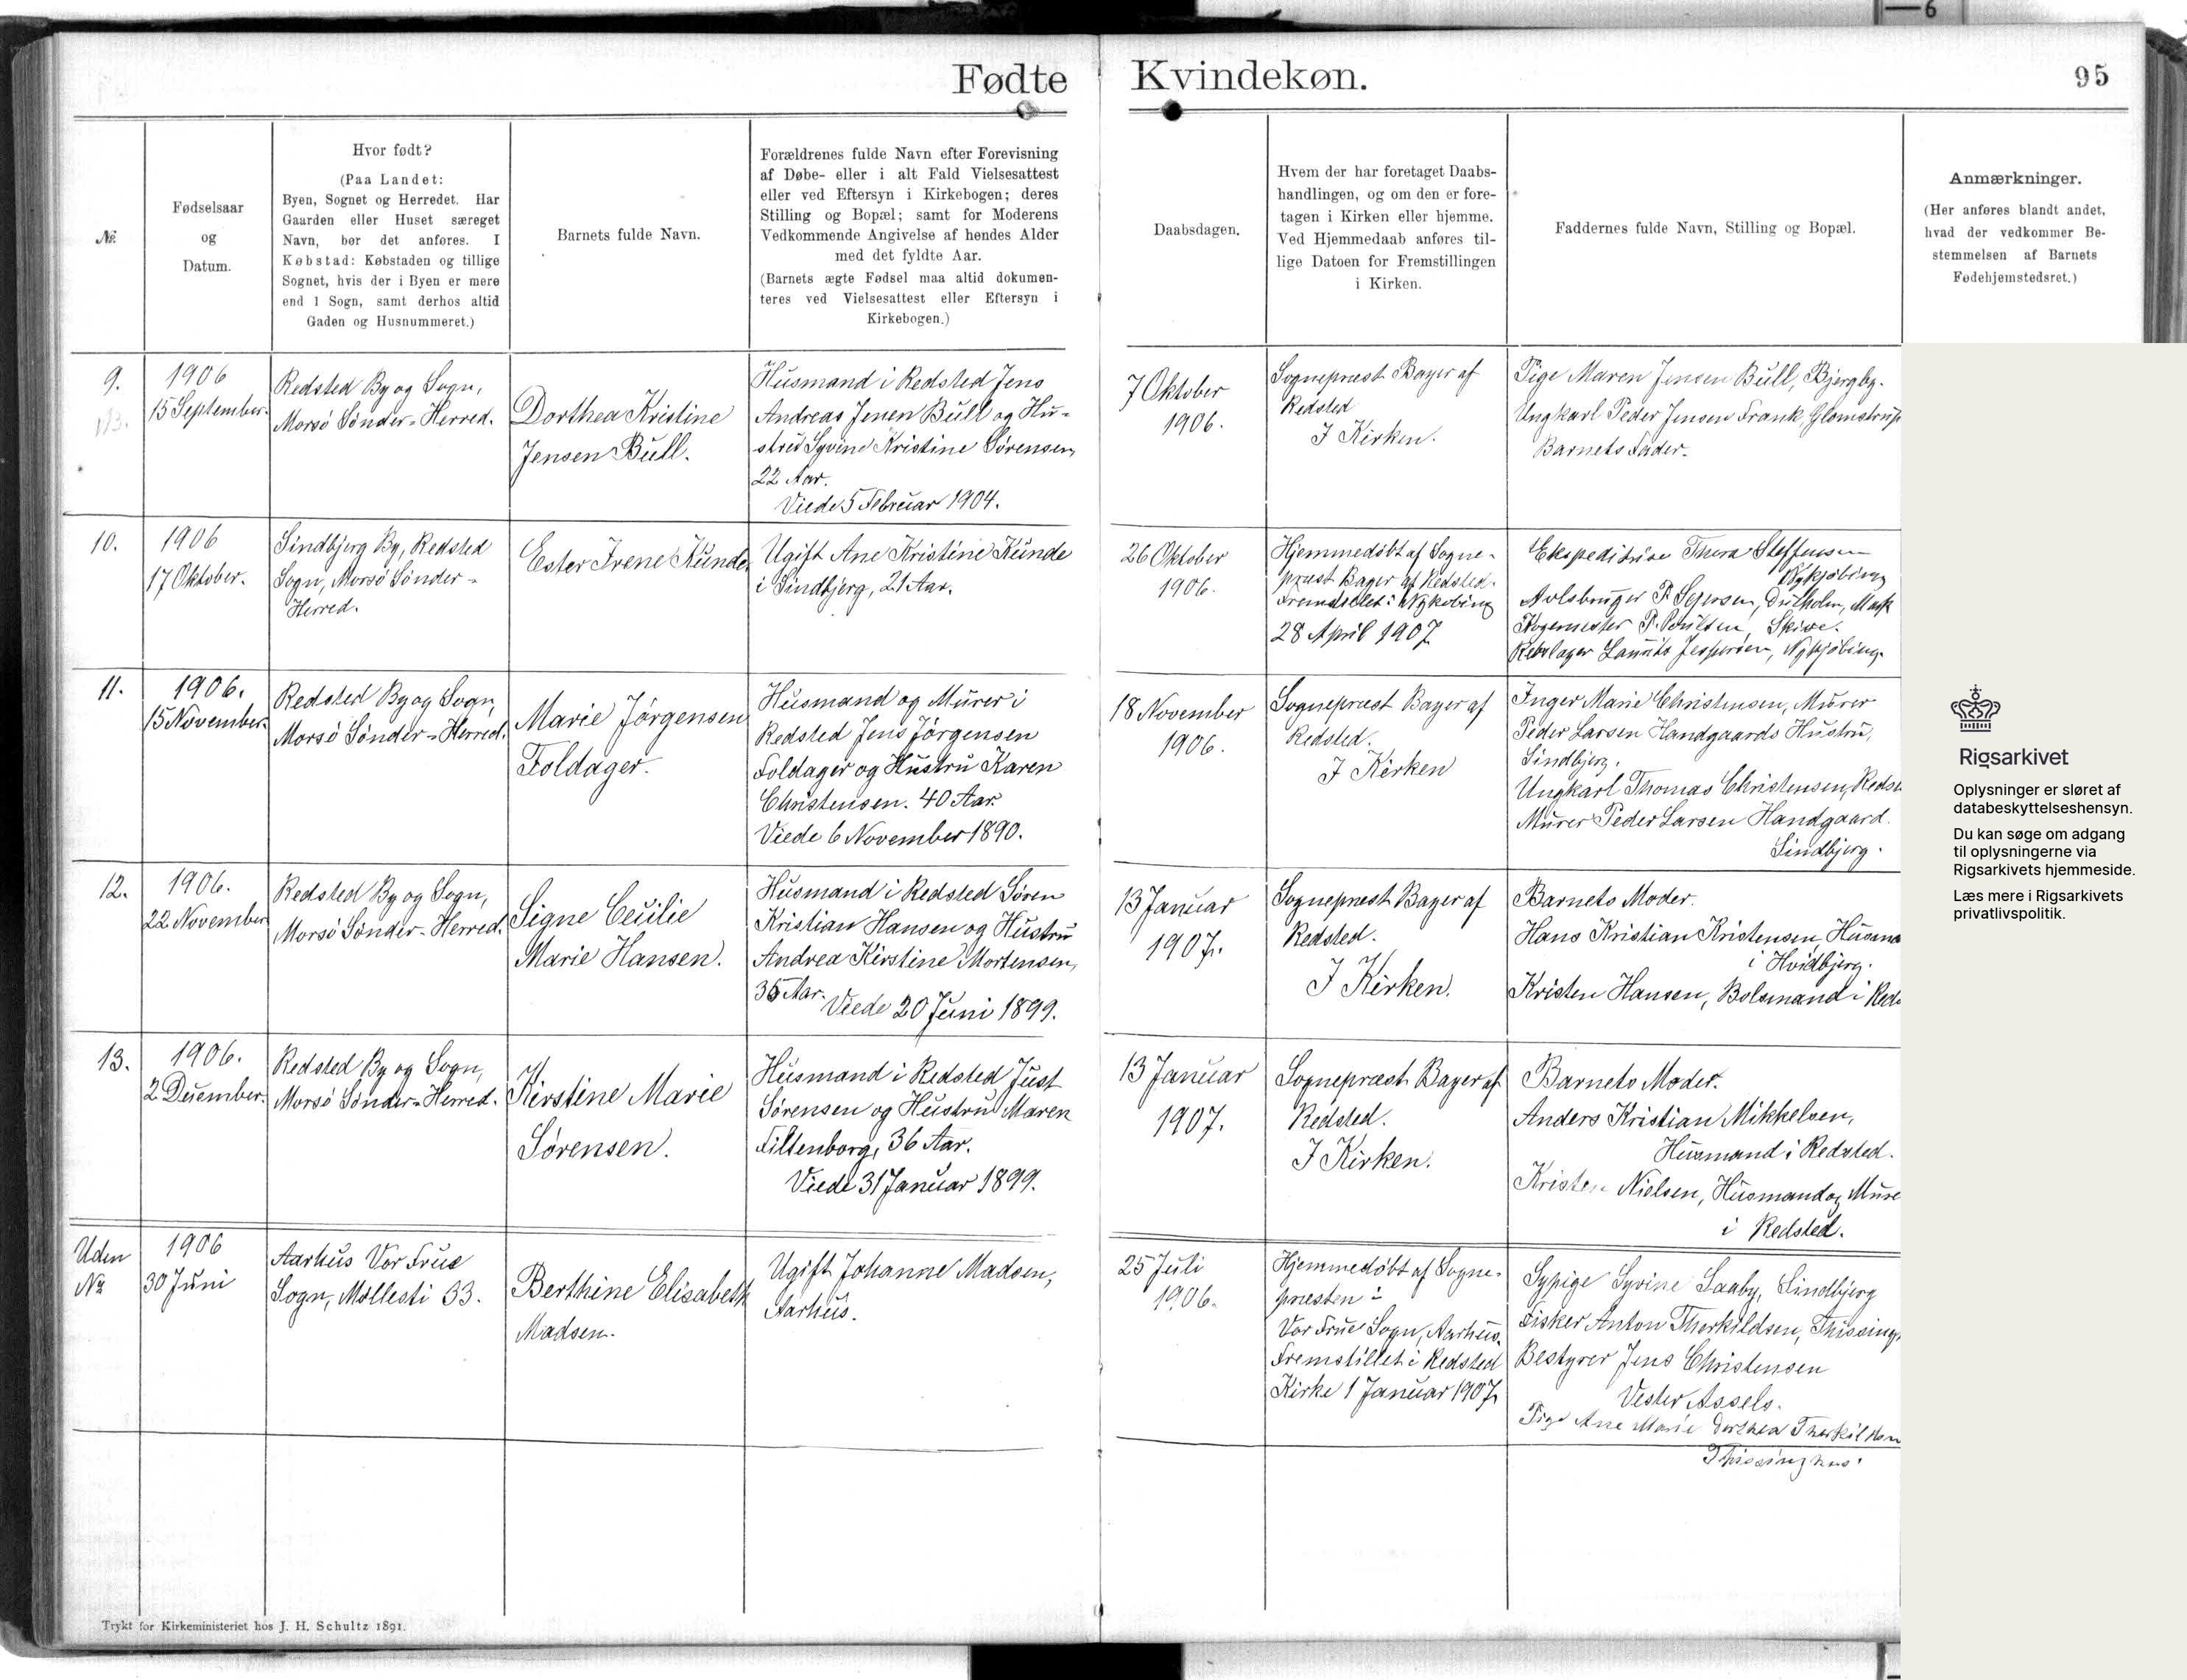 6
Fødte Kvindekøn.
95
№
Fødselsaar
og
Datum.
Hvor født?
(Paa Landet:
Byen, Sognet og Herredet. Har
Gaarden eller Huset særeget
Navn, bør det anføres. I
Købstad: Købstaden og tillige
Sognet, hvis der i Byen er mere
end 1 Sogn, samt derhos altid
Gaden og Husnummeret.)
Barnets fulde Navn.
Forældrenes fulde Navn efter Forevisning
af Døbe- eller i alt Fald Vielsesattest
eller ved Eftersyn i Kirkebogen; deres
Stilling og Bopæl; samt for Moderens
Vedkommende Angivelse af hendes Alder
med det fyldte Aar.
(Barnets ægte Fødsel maa altid dokumen-
teres ved Vielsesattest eller Eftersyn i
Kirkebogen.)
Daabsdagen.
Hvem der har foretaget Daabs-
handlingen, og om den er fore-
tagen i Kirken eller hjemme.
Ved Hjemmedaab anføres til-
lige Datoen for Fremstillingen
i Kirken.
Faddernes fulde Navn, Stilling og Bopæl.
Anmærkninger.
(Her anføres blandt andet,
hvad der vedkommer Be-
stemmelsen af Barnets
Fødehjemstedsret.)
9.
1906
15 September.
Redsted By og Sogn,
Morsø Sønder-Herred.
Dorthea Kristine
Jensen Bull.
Husmand i Redsted Jens
Andreas Jensen Bull og Hu-
stru Syvine Kristine Sørensen,
22 Aar.
Viede 5 Februar 1904.
7 Oktober
1906.
Sognepræst Bayer af
Redsted
I Kirken.
Pige Maren Jensen Bull, Bjergby.
Ungkarl Peder Jensen Frank, Glomstrup
Barnets Fader.
10.
1906
17 Oktober.
Sindbjerg By, Redsted
Sogn, Morsø Sønder-
Herred.
Ester Irene Kunde.
Ugift Ane Kristine Kunde
i Sindbjerg, 21 Aar.
26 Oktober
1906.
Hjemmedøbt af Sogne-
præst Bayer af Redsted.
Fremstillet i Nykøbing
28 April 1907
Ekspeditrice Thora Steffensen
Nykjøbing
Avlsbruger P. Sejersen, Dueholm, Mark
P. Poulsen, Skive.
Rebslager Laurits Jespersen, Nykjøbing.
11.
1906.
15 November.
Redsted By og Sogn,
Morsø Sønder-Herred.
Marie Jørgensen
Foldager.
Husmand og Murer i
Redsted Jens Jørgensen
Foldager og Hustru Karen
Christensen. 40 Aar.
Viede 6 November 1890.
18 November
1906.
Sognepræst Bayer af
Redsted.
I Kirken
Inger Marie Christensen, Murer
Peder Larsen Handgaards Hustru,
Sindbjerg.
Ungkarl Thomas Christensen, Redst
Murer Peder Larsen Handgaard.
Sindbjerg.
12.
1906.
22 November
Redsted By og Sogn,
Morsø Sønder-Herred.
Signe Cecilie
Marie Hansen.
Husmand i Redsted Søren
Kristian Hansen og Hustru
Andrea Kirstine Mortensen,
Aar.
Viede 20 Juni 1899.
13 Januar
1907.
Sognepræst Bayer af
Redsted.
I Kirken.
Barnets Moder.
Hans Kristian Kristensen, Husma
i Hvidbjerg.
Kristen Hansen, Bolsmand i Red
13.
1906.
2 December.
Redsted By og Sogn,
Morsø Sønder-Herred.
Kirstine Marie
Sørensen.
Husmand i Redsted Just
Sørensen og Hustru Maren
Filtenborg, 36 Aar.
Viede 31 Januar 1899.
13 Januar
1907.
Sognepræst Bayer af
Redsted.
I Kirken.
Barnets Moder.
Anders Kristian Mikkelsen,
Husmand i Redsted.
Kristen Nielsen, Husmand og Mure
i Redsted.
Uden
№
1906
30 Juni
Aarhus Vor Frue
Sogn, Møllesti 33.
Berthine Elisabeth
Madsen.
Ugift Johanne Madsen,
Aarhus.
25 Juli
1906.
Hjemmedøbt af Sogne-
præsten i
Vor Frue Sogn, Aarhus.
Fremstillet i Redsted
Kirke 1 Januar 1907.
Sypige Syvine Saaby, Sindbjerg
Fisker Anton Therkildsen, Thissing
Bestyrer Jens Christensen
Vester Assels.
Pige Ane Marie Dorthea Therkildsen
Thissinghus.
Rigsarkivet
Oplysninger er sløret af
databeskyttelseshensyn.
Du kan søge om adgang
til oplysningerne via
Rigsarkivets hjemmeside.
Læs mere i Rigsarkivets
privatlivspolitik.
Trykt for Kirkeministeriet hos J. H. Schultz 1891.